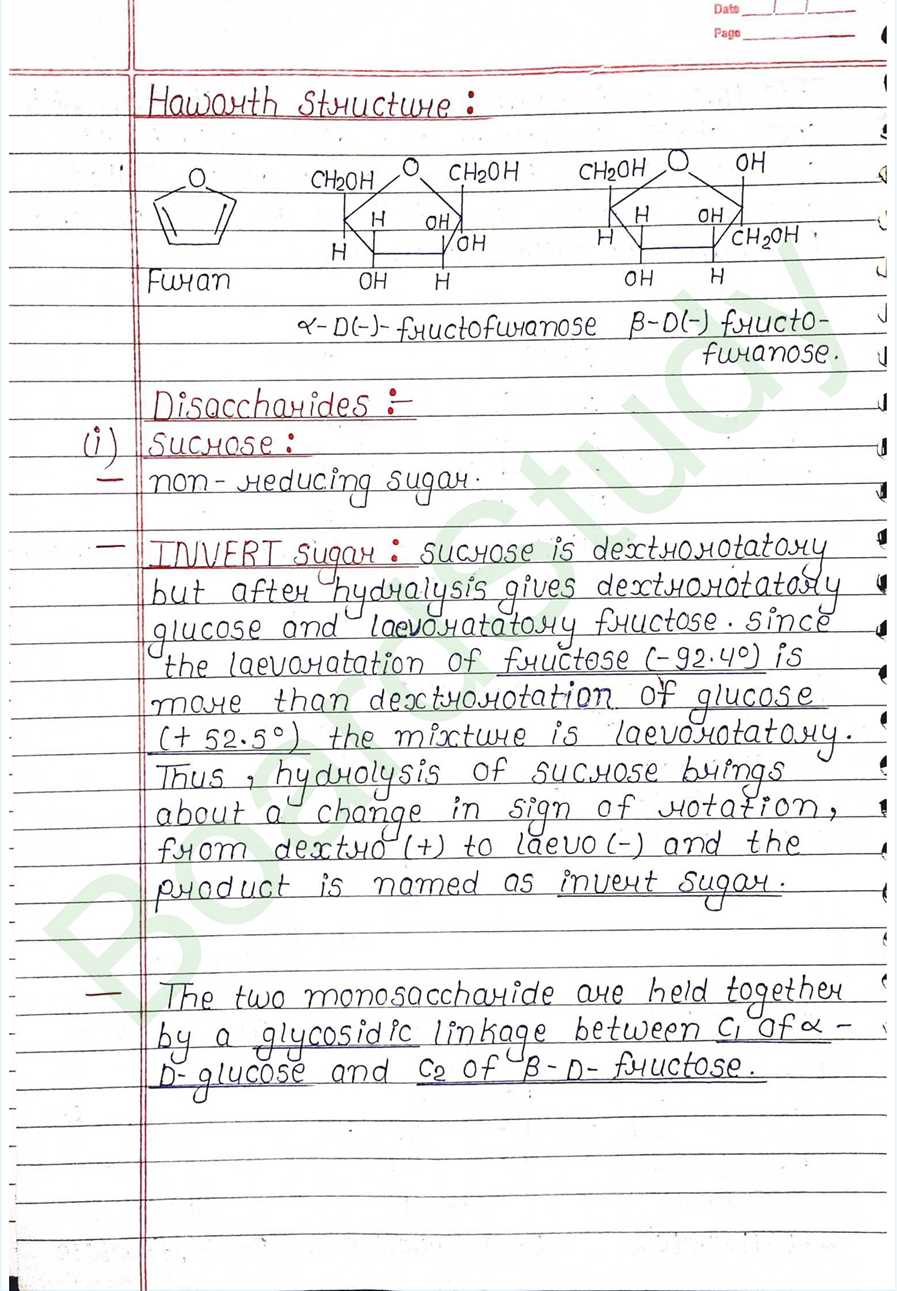 Date __/__/__
Page ______
Haworth Structure :
O
CH2OH O CH2OH
H OH
H OH
OH H
CH2OH O OH
H OH
H CH2OH .
OH H
Furan
α-D(-)- fructofuranose β-D(-) fructo-
furanose.
Disaccharides :-
(i) Sucrose :
— non-reducing sugar.
— INVERT sugar : sucrose is dextrorotatory
but after hydralysis gives dextrorotatory
glucose and laevoratatory fructose. Since
the laevaratation of fructose (-92.4°) is
more than dextrorotation of glucose
(+ 52.5°) the mixture is laevorotatory.
Thus, hydrolysis of sucrose brings
about a change in sign of rotation,
from dextro (+) to laevo (-) and the
product is named as invert sugar.
— The two monosaccharide are held together
by a glycosidic linkage between C1 of α-
D-glucose and C2 of β-D-fructose.
BoardStudy